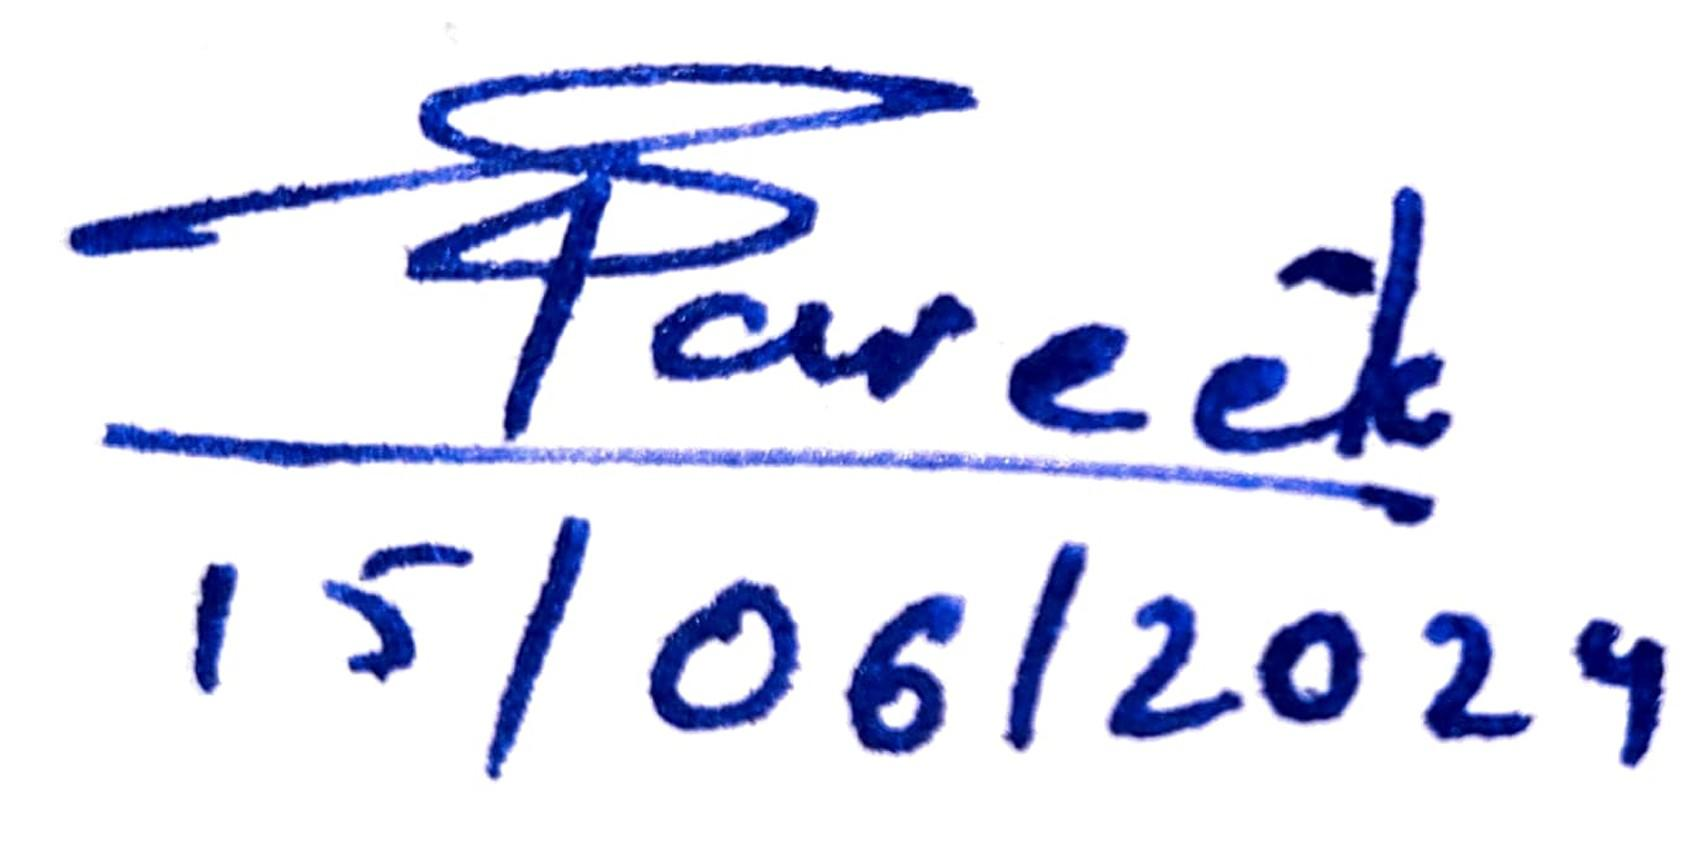 Pareek
15/06/2024